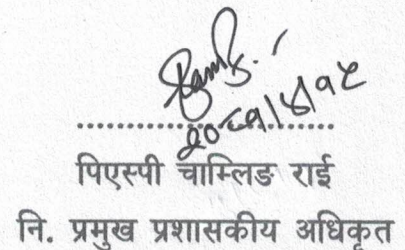 २०८१/४/१५
..............................
पिएसपी चाम्लिङ राई
नि. प्रमुख प्रशासकीय अधिकृत